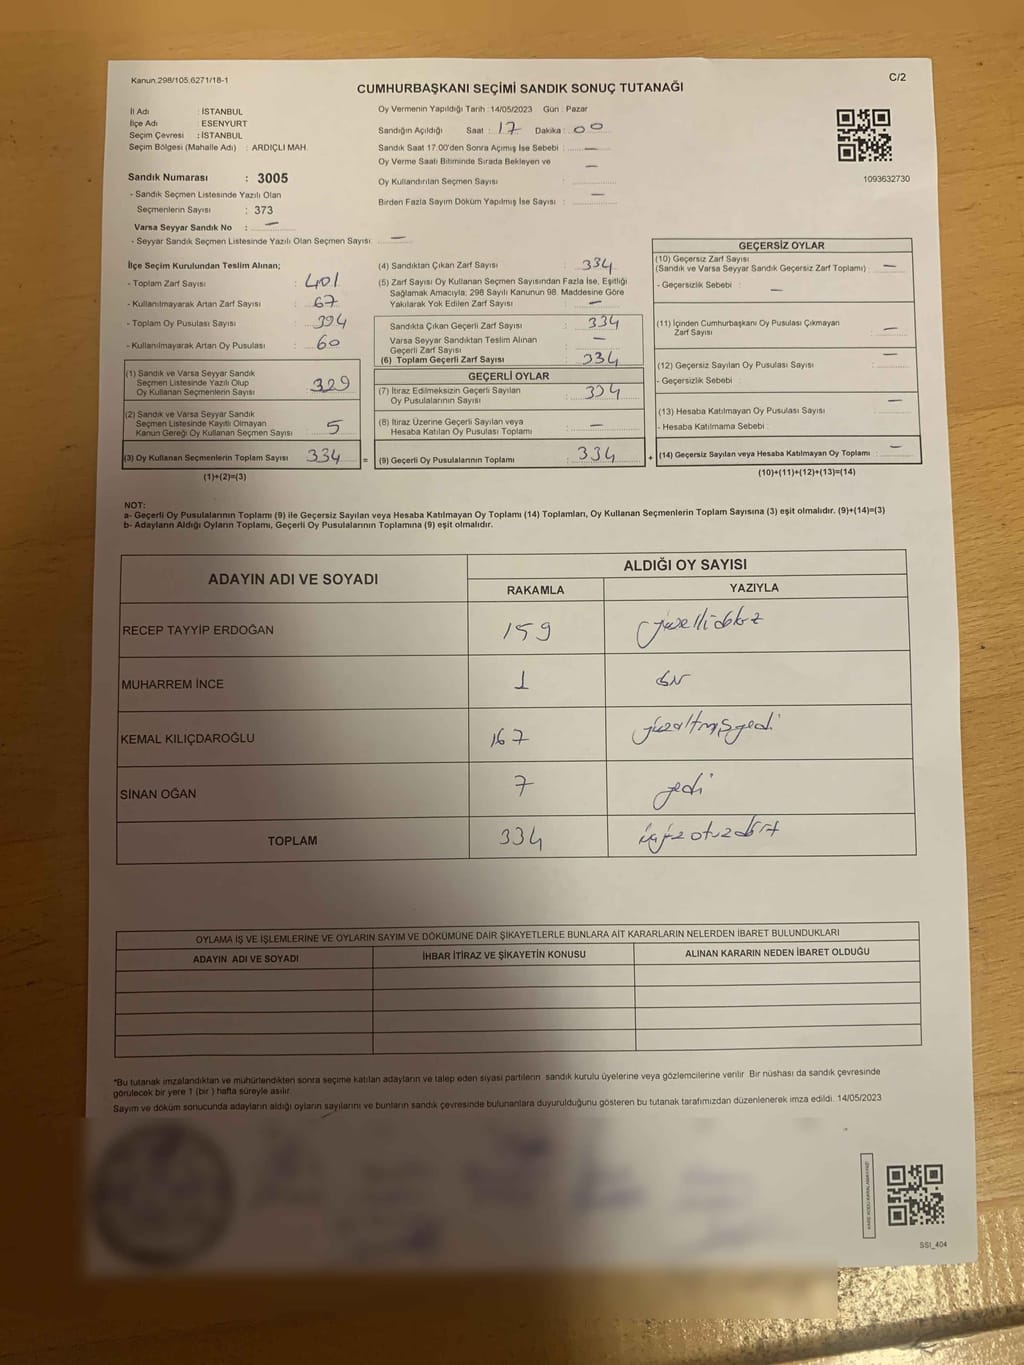 Kanun.298/105.6271/18-1
C/2
CUMHURBAŞKANI SEÇİMİ SANDIK SONUÇ TUTANAĞI
İl Adı : İSTANBUL
İlçe Adı : ESENYURT
Seçim Çevresi : İSTANBUL
Seçim Bölgesi (Mahalle Adı) : ARDIÇLI MAH.
Sandık Numarası : 3005
- Sandık Seçmen Listesinde Yazılı Olan
Seçmenlerin Sayısı : 373
Varsa Seyyar Sandık No : —
- Seyyar Sandık Seçmen Listesinde Yazılı Olan Seçmen Sayısı: —
Oy Vermenin Yapıldığı Tarih :14/05/2023 Gün : Pazar
Sandığın Açıldığı Saat : 17 Dakika : 00
Sandık Saat 17.00'den Sonra Açımış İse Sebebi : —
Oy Verme Saati Bitiminde Sırada Bekleyen ve —
Oy Kullandırılan Seçmen Sayısı :
Birden Fazla Sayım Döküm Yapılmış İse Sayısı : —
1093632730
İlçe Seçim Kurulundan Teslim Alınan;
- Toplam Zarf Sayısı : 401
- Kullanılmayarak Artan Zarf Sayısı : 67
- Toplam Oy Pusulası Sayısı : 394
- Kullanılmayarak Artan Oy Pusulası : 60
(1) Sandık ve Varsa Seyyar Sandık
Seçmen Listesinde Yazılı Olup
Oy Kullanan Seçmenlerin Sayısı : 329
(2) Sandık ve Varsa Seyyar Sandık
Seçmen Listesinde Kayıtlı Olmayan
Kanun Gereği Oy Kullanan Seçmen Sayısı : 5
(3) Oy Kullanan Seçmenlerin Toplam Sayısı : 334 =
(1)+(2)=(3)
(4) Sandıktan Çıkan Zarf Sayısı : 334
(5) Zarf Sayısı Oy Kullanan Seçmen Sayısından Fazla İse, Eşitliği
Sağlamak Amacıyla; 298 Sayılı Kanunun 98. Maddesine Göre
Yakılarak Yok Edilen Zarf Sayısı : —
Sandıkta Çıkan Geçerli Zarf Sayısı : 334
Varsa Seyyar Sandıktan Teslim Alınan —
Geçerli Zarf Sayısı :
(6) Toplam Geçerli Zarf Sayısı : 334
GEÇERLİ OYLAR
(7) İtiraz Edilmeksizin Geçerli Sayılan
Oy Pusulalarının Sayısı : 334
(8) İtiraz Üzerine Geçerli Sayılan veya
Hesaba Katılan Oy Pusulası Toplamı : —
(9) Geçerli Oy Pusulalarının Toplamı : 334 +
GEÇERSİZ OYLAR
(10) Geçersiz Zarf Sayısı
(Sandık ve Varsa Seyyar Sandık Geçersiz Zarf Toplamı) : —
- Geçersizlik Sebebi : —
(11) İçinden Cumhurbaşkanı Oy Pusulası Çıkmayan
Zarf Sayısı : —
(12) Geçersiz Sayılan Oy Pusulası Sayısı : —
- Geçersizlik Sebebi :
(13) Hesaba Katılmayan Oy Pusulası Sayısı : —
- Hesaba Katılmama Sebebi :
(14) Geçersiz Sayılan veya Hesaba Katılmayan Oy Toplamı : —
(10)+(11)+(12)+(13)=(14)
NOT:
a- Geçerli Oy Pusulalarının Toplamı (9) ile Geçersiz Sayılan veya Hesaba Katılmayan Oy Toplamı (14) Toplamları, Oy Kullanan Seçmenlerin Toplam Sayısına (3) eşit olmalıdır. (9)+(14)=(3)
b- Adayların Aldığı Oyların Toplamı, Geçerli Oy Pusulalarının Toplamına (9) eşit olmalıdır.
ADAYIN ADI VE SOYADI
ALDIĞI OY SAYISI
RAKAMLA YAZIYLA
RECEP TAYYİP ERDOĞAN 159 yüzellidokuz
MUHARREM İNCE 1 BİR
KEMAL KILIÇDAROĞLU 167 yüzaltmışyedi
SİNAN OĞAN 7 yedi
TOPLAM 334 üçyüzotuzdört
OYLAMA İŞ VE İŞLEMLERİNE VE OYLARIN SAYIM VE DÖKÜMÜNE DAİR ŞİKAYETLERLE BUNLARA AİT KARARLARIN NELERDEN İBARET BULUNDUKLARI
ADAYIN ADI VE SOYADI İHBAR İTİRAZ VE ŞİKAYETİN KONUSU ALINAN KARARIN NEDEN İBARET OLDUĞU
*Bu tutanak imzalandıktan ve mühürlendikten sonra seçime katılan adayların ve talep eden siyasi partilerin sandık kurulu üyelerine veya gözlemcilerine verilir. Bir nüshası da sandık çevresinde
görülecek bir yere 1 (bir) hafta süreyle asılır.
Sayım ve döküm sonucunda adayların aldığı oyların sayılarını ve bunların sandık çevresinde bulunanlara duyurulduğunu gösteren bu tutanak tarafımızdan düzenlenerek imza edildi. 14/05/2023
SSI_404